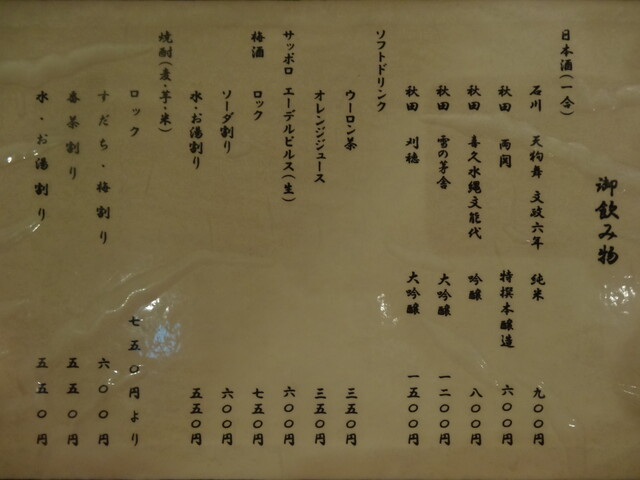 御飲み物
日本酒(一合)
石川 天狗舞 文政六年 純米 九〇〇円
秋田 両関 特撰本醸造 六〇〇円
秋田 喜久水縄文能代 吟醸 八〇〇円
秋田 雪の茅舎 大吟醸 一二〇〇円
秋田 刈穂 大吟醸 一五〇〇円
ソフトドリンク
ウーロン茶 三五〇円
オレンジジュース 三五〇円
サッポロ エーデルピルス(生) 六〇〇円
梅酒 ロック 七五〇円
ソーダ割り 六〇〇円
水・お湯割り 五五〇円
焼酎(麦・芋・米)
ロック 七五〇円より
すだち・梅割り 六〇〇円
番茶割り 五五〇円
水・お湯割り 五五〇円